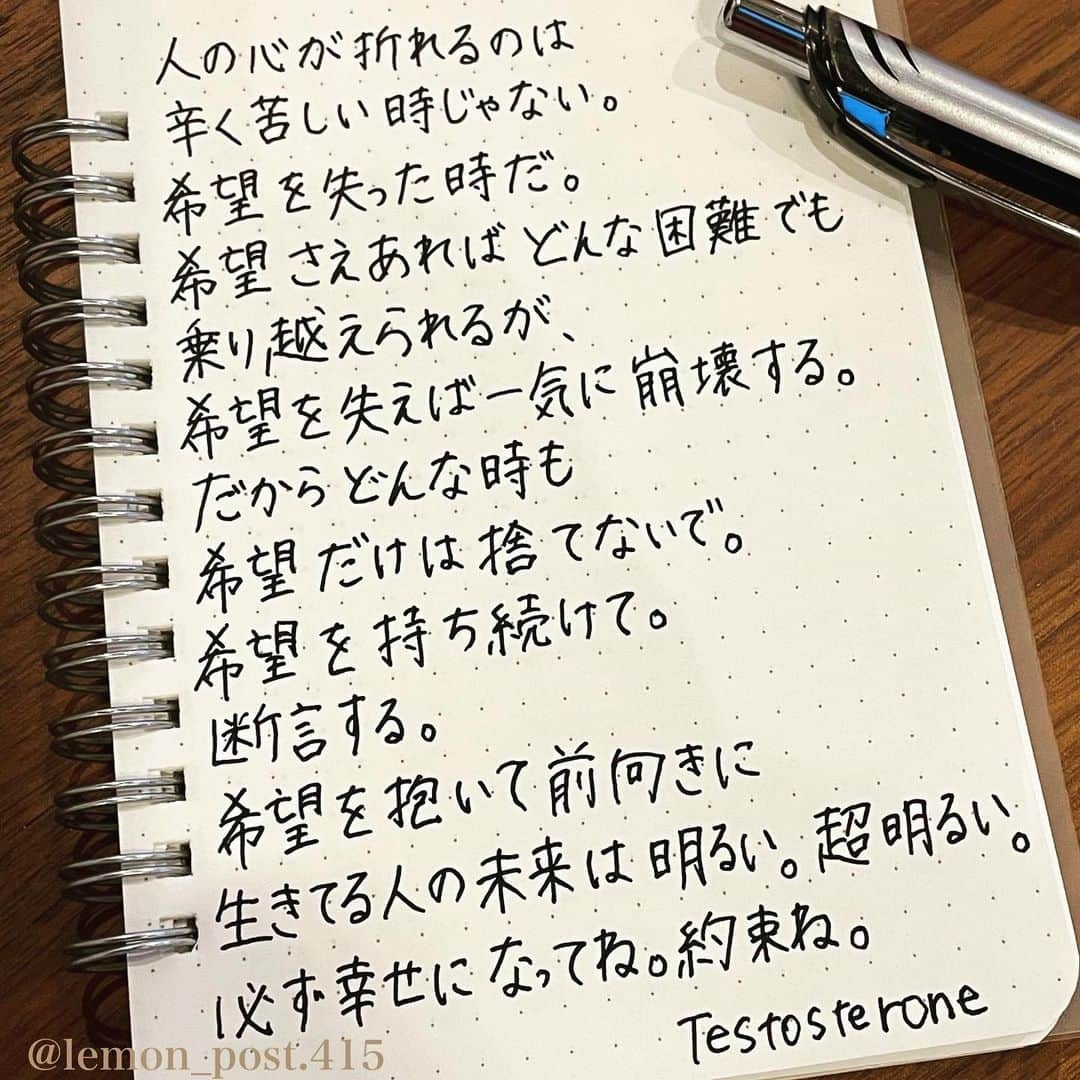 人の心が折れるのは
辛く苦しい時じゃない。
希望を失った時だ。
希望さえあればどんな困難でも
乗り越えられるが、
希望を失えば一気に崩壊する。
だからどんな時も
希望だけは捨てないで。
希望を持ち続けて。
断言する。
希望を抱いて前向きに
生きてる人の未来は明るい。超明るい。
必ず幸せになってね。約束ね。
Testosterone
@lemon_post.415